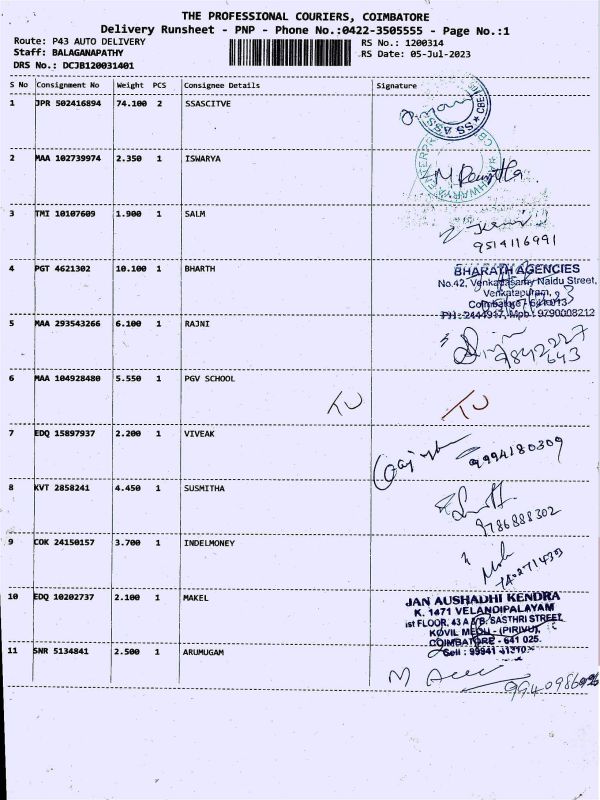 THE PROFESSIONAL COURIERS, COIMBATORE
Delivery Runsheet - PNP - Phone No.:0422-3505555 - Page No.:1
Route: P43 AUTO DELIVERY
RS No.: 1200314
Staff: BALAGANAPATHY
RS Date: 05-Jul-2023
DRS No.: DCJB120031401
S No Consignment No Weight PCS Consignee Details Signature
1 JPR 502416894 74.100 2 SSASCITVE
SS ASS CBE
2 MAA 102739974 2.350 1 ISWARYA
3 TMI 10107609 1.900 1 SALM
9514116991
4 PGT 4621302 10.100 1 BHARTH
BHARATH AGENCIES
No.42, Venkatasamy Naidu Street,
Venkatapuram,
Coimbatore - 641013
PH: 2444917, Mob: 9790008212
5 MAA 293543266 6.100 1 RAJNI
9842227
643
6 MAA 104928480 5.550 1 PGV SCHOOL
7 EDQ 15897937 2.200 1 VIVEAK
9994180309
8 KVT 2858241 4.450 1 SUSMITHA
9786888302
9 COK 24150157 3.700 1 INDELMONEY
10 EDQ 10202737 2.100 1 MAKEL
JAN AUSHADHI KENDRA
K. 1471 VELANDIPALAYAM
ist FLOOR, 43 A V.B. SASTHRI STREET
KOVIL MEDU - (PIRIVU),
COIMBATORE - 641 025.
Cell : 99941 41310
11 SNR 5134841 2.500 1 ARUMUGAM